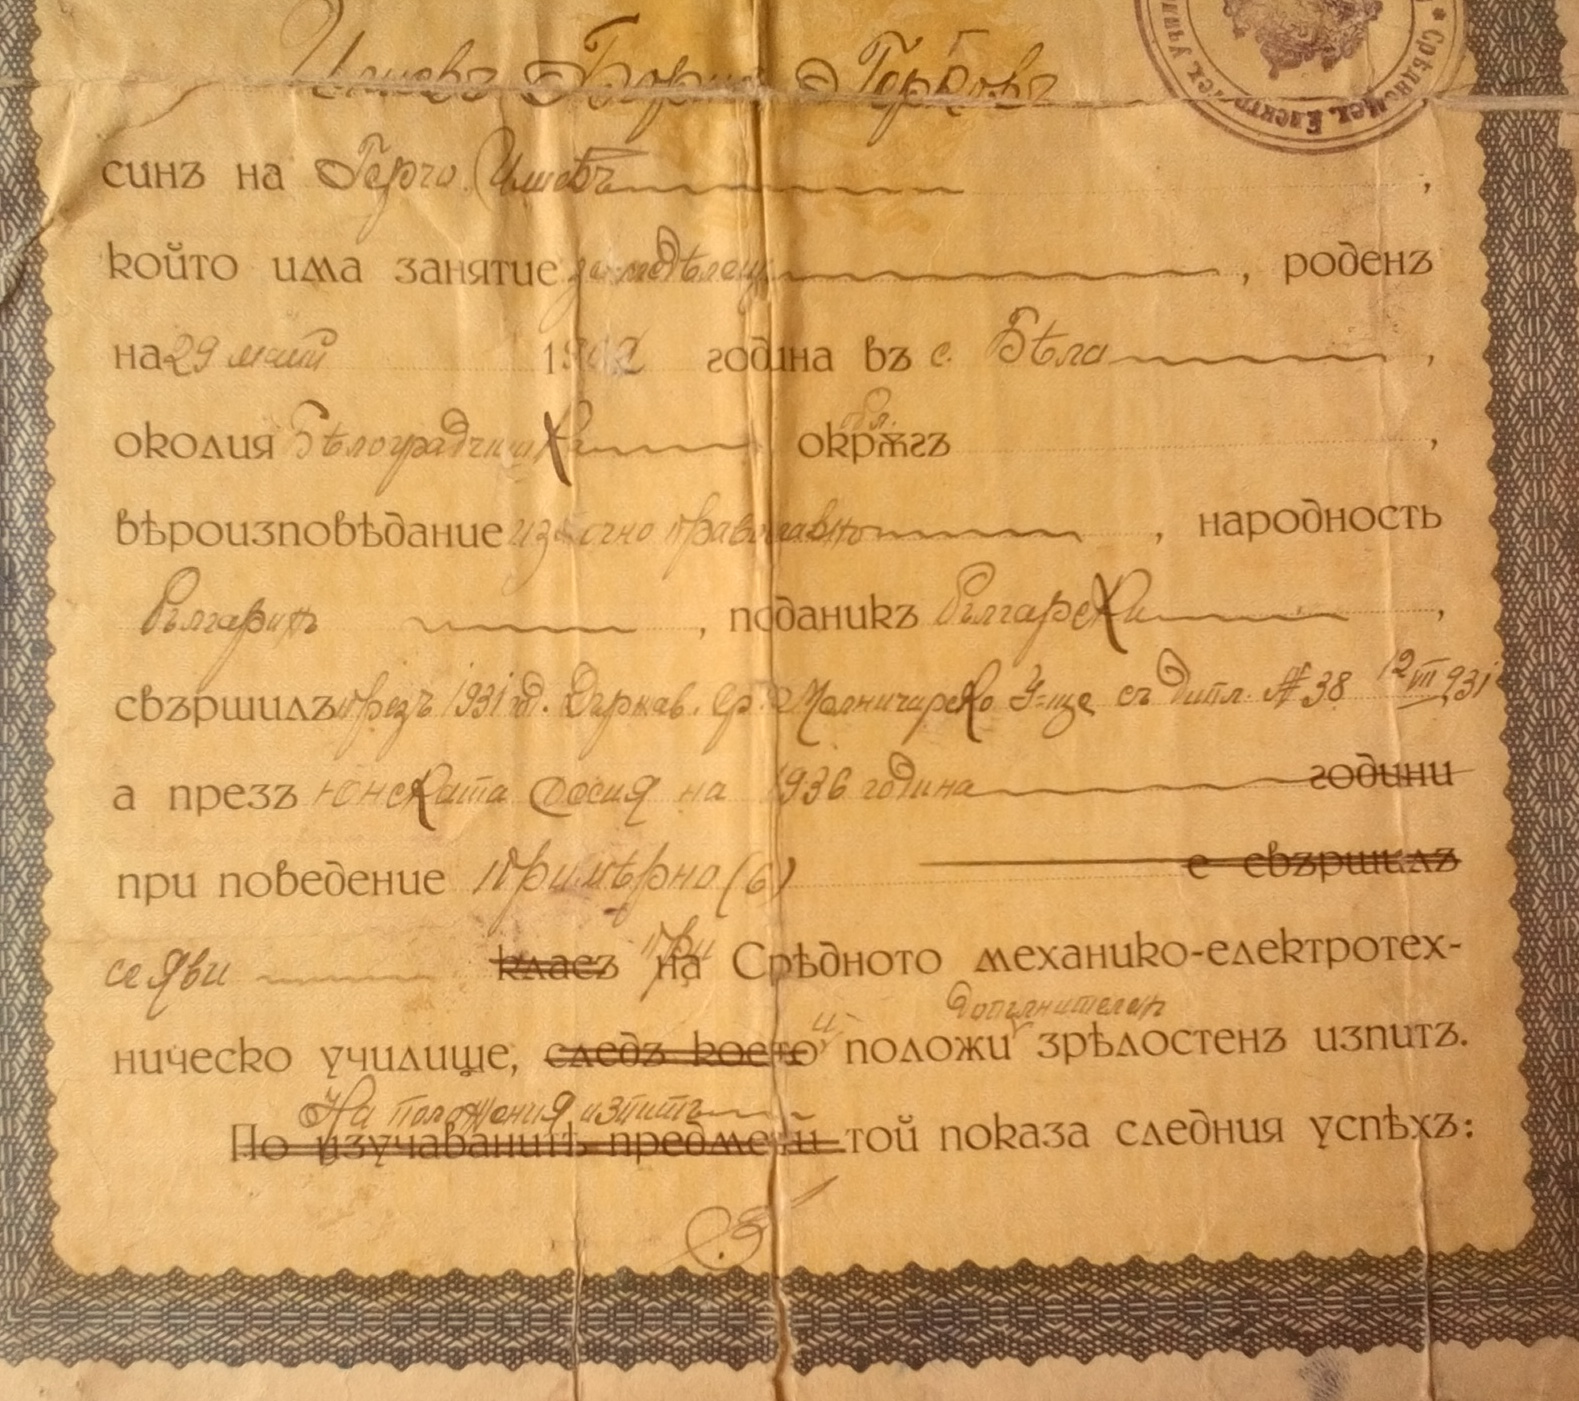 Борисъ Герговъ
Срѣдно Мех. Електротех. учил
синъ на Герго Илиевъ ,
който има занятие земедѣлец , роденъ
на 29 май 19 година въ с. Бѣла ,
околия Бѣлоградчишка обл. окрѫгъ ,
вѣроизповѣдание източно православно , народность
българинъ , поданикъ български ,
свършилъ презъ 1931 год. Държав. ср. Мелничарско У-ще съ дипл. № 38 12 VII 931
а презъ юнската сесия на 1936 година години
при поведение примѣрно (6) е свършилъ
се яви класъ при на Срѣдното механико-електротех-
ническо училище, следъ което и положи допълнителен зрѣлостенъ изпитъ.
На положения изпитъ
По изучаванитѣ предмети той показа следния успѣхъ: